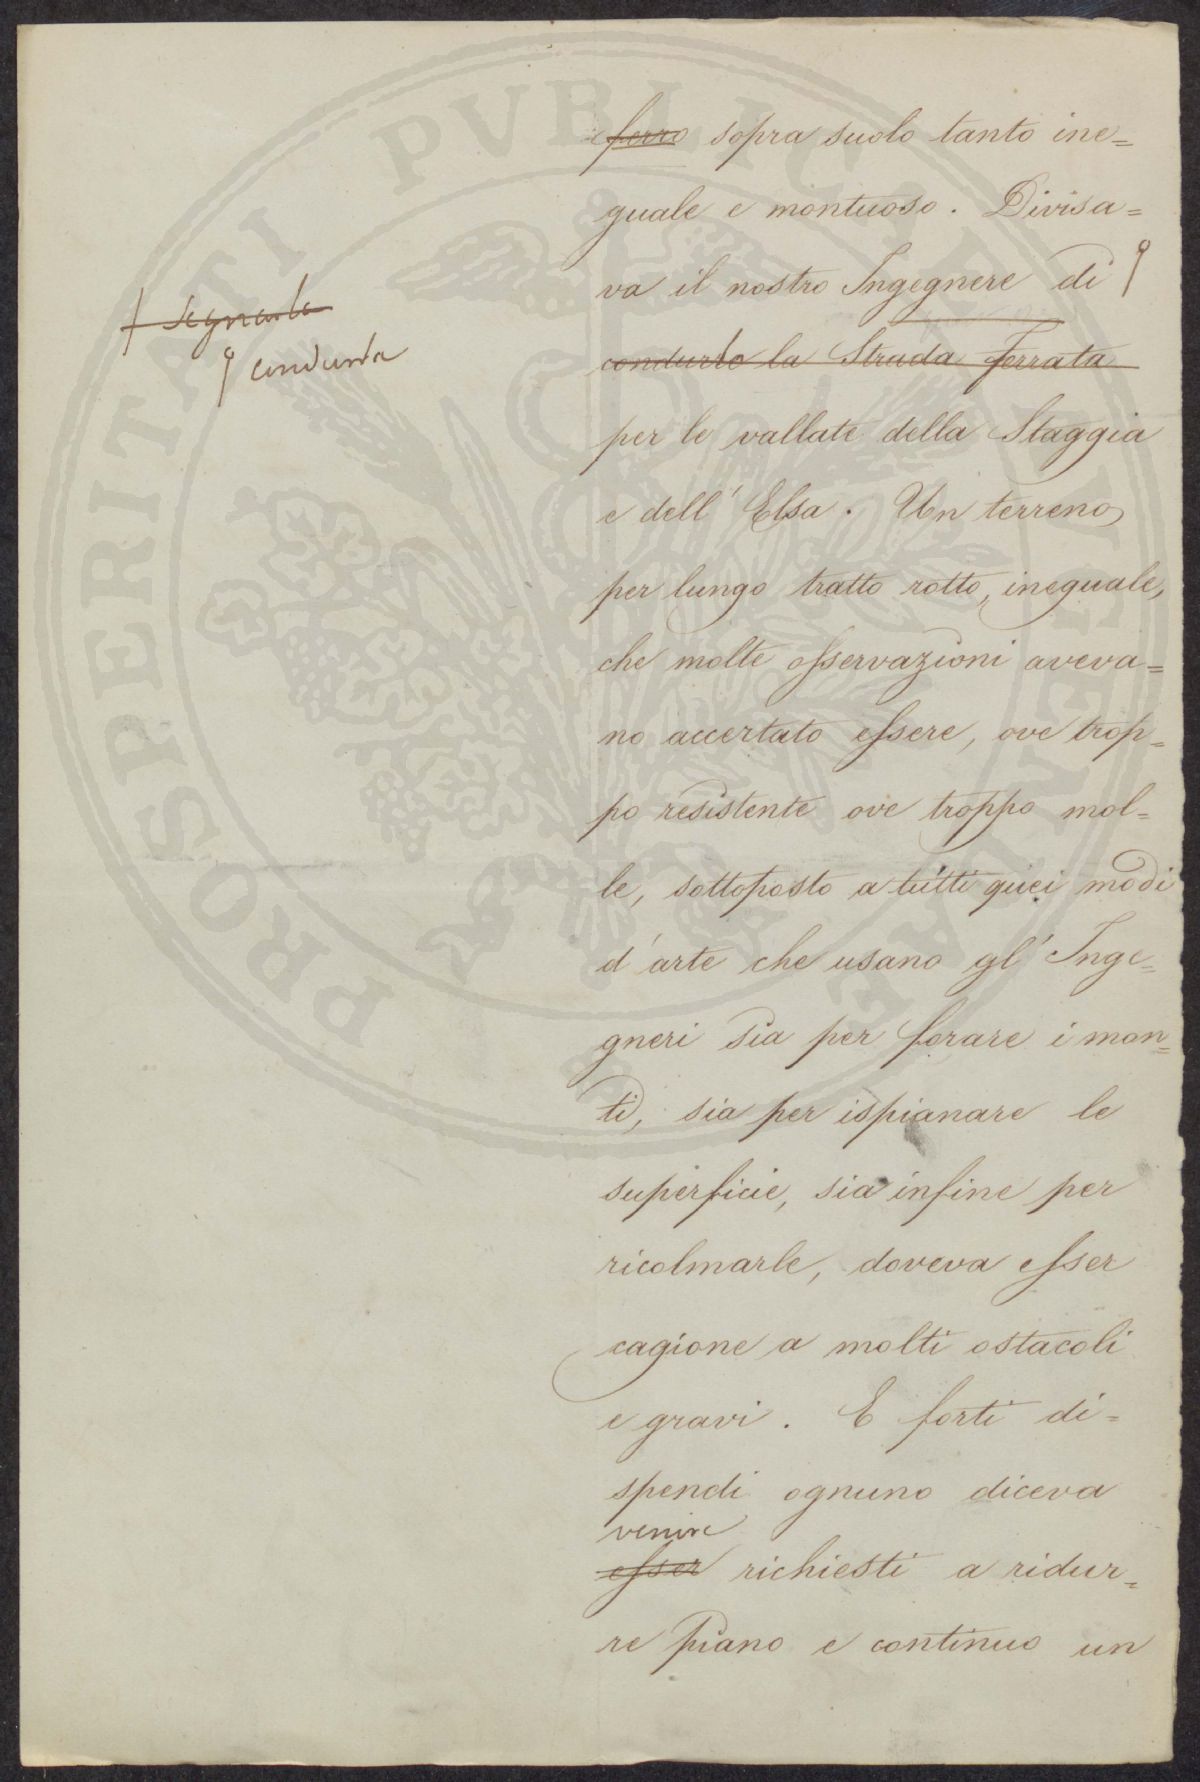 ferro sopra suolo tanto ine=
guale e montuoso. Divisa=
va il nostro Ingegnere di
segnarla
condurla
condurlo la Strada Ferrata
per le vallate della Staggia
e dell' Elsa. Un terreno
per lungo tratto rotto, ineguale,
che molte osservazioni aveva=
no accertato essere, ove trop=
po resistente ove troppo mol=
le, sottoposto a tutti quei modi
d'arte che usano gl' Inge=
gneri sia per forare i mon=
ti, sia per ispianare le
superficie, sia infine per
ricolmarle, doveva esser
cagione a molti ostacoli
e gravi. E forti di=
spendi ognuno diceva
venire
esser richiesti a ridur=
re piano e continuo un
PROSPERITATI PVBLICAE AVGENDAE